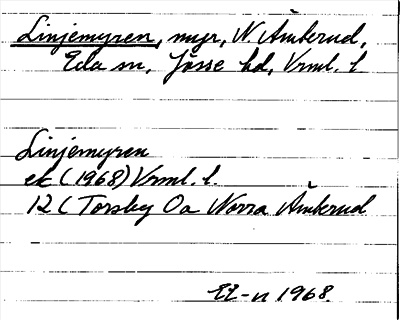 Linjemyren, myr, N. Åmterud,
Eda sn, Jösse hd, Vrml. l
Linjemyren
ek (1968) Vrml. l.
12 C Torsby Oa Norra Åmterud
1968